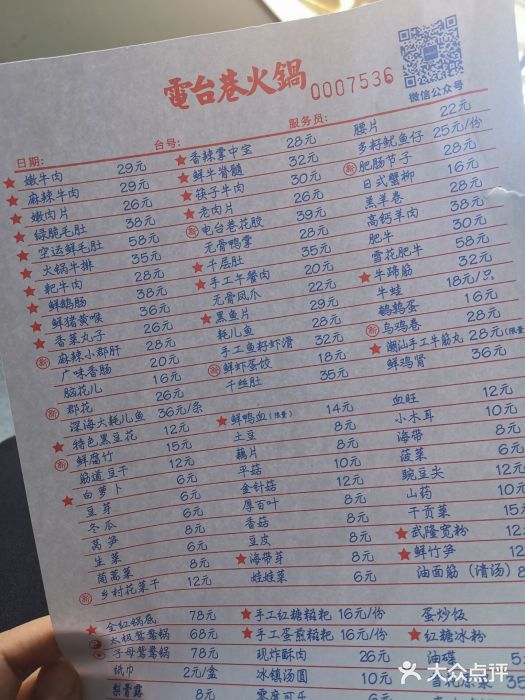 電台巷火鍋
0007536
微信公众号
日期：
台号：
服务员：
★ 嫩牛肉 29元
★ 麻辣牛肉 29元
★ 嫩肉片 26元
★ 绿脆毛肚 38元
★ 空运鲜毛肚 58元
★ 火锅牛排 35元
★ 耙牛肉 28元
★ 鲜鹅肠 38元
★ 鲜猪黄喉 36元
★ 香菜丸子 26元
新 麻辣小郡肝 28元
广味香肠 20元
脑花儿 16元
新 郡花 26元
深海大耗儿鱼 36元/条
★ 特色黑豆花 12元
新 鲜腐竹 15元
筋道豆干 12元
★ 白萝卜 6元
豆芽 6元
冬瓜 6元
莴笋 8元
生菜 6元
茼蒿菜 8元
新 乡村花菜干 12元
★ 香辣掌中宝 28元
★ 鲜牛脊髓 32元
★ 筷子牛肉 30元
★ 老肉片 26元
新 电台巷花胶 39元
无骨鸭掌 28元
★ 千层肚 35元
★ 手工午餐肉 20元
无骨凤爪 22元
★ 黑鱼片 29元
耗儿鱼 28元
手工鱼籽虾滑 32元
新 鲜虾蛋饺 18元
千丝肚 35元
★ 鲜鸭血(限量) 14元
土豆 8元
藕片 8元
平菇 10元
金针菇 12元
厚百叶 8元
香菇 10元
豆皮 8元
★ 海带芽 8元
娃娃菜 6元
腰片 22元
多籽鱿鱼仔 25元/份
新 肥肠节子 28元
日式蟹柳 16元
黑羊卷 28元
高钙羊肉 38元
肥牛 30元
雪花肥牛 58元
★ 牛蹄筋 32元
牛蛙 18元/只
鹌鹑蛋 16元
新 乌鸡卷 28元
★ 潮汕手工牛筋丸 28元(限量)
鲜鸡肾 36元
血旺 12元
小木耳 10元
海带 8元
菠菜 6元
豌豆尖 12元
山药 10元
干贡菜 15元
★ 武隆宽粉 12元
★ 鲜竹笋 12元
油面筋（清汤） 8
★ 全红锅底 78元
★ 太极鸳鸯锅 68元
新 子母鸳鸯锅 78元
纸巾 2元/盒
梨膏露 8元
★ 手工红糖糍粑 16元/份
★ 手工蛋煎糍粑 16元/份
现炸酥肉 26元
冰镇汤圆 10元
零度可乐
蛋炒饭
★ 红糖冰粉
油碟
雪花凉
大众点评